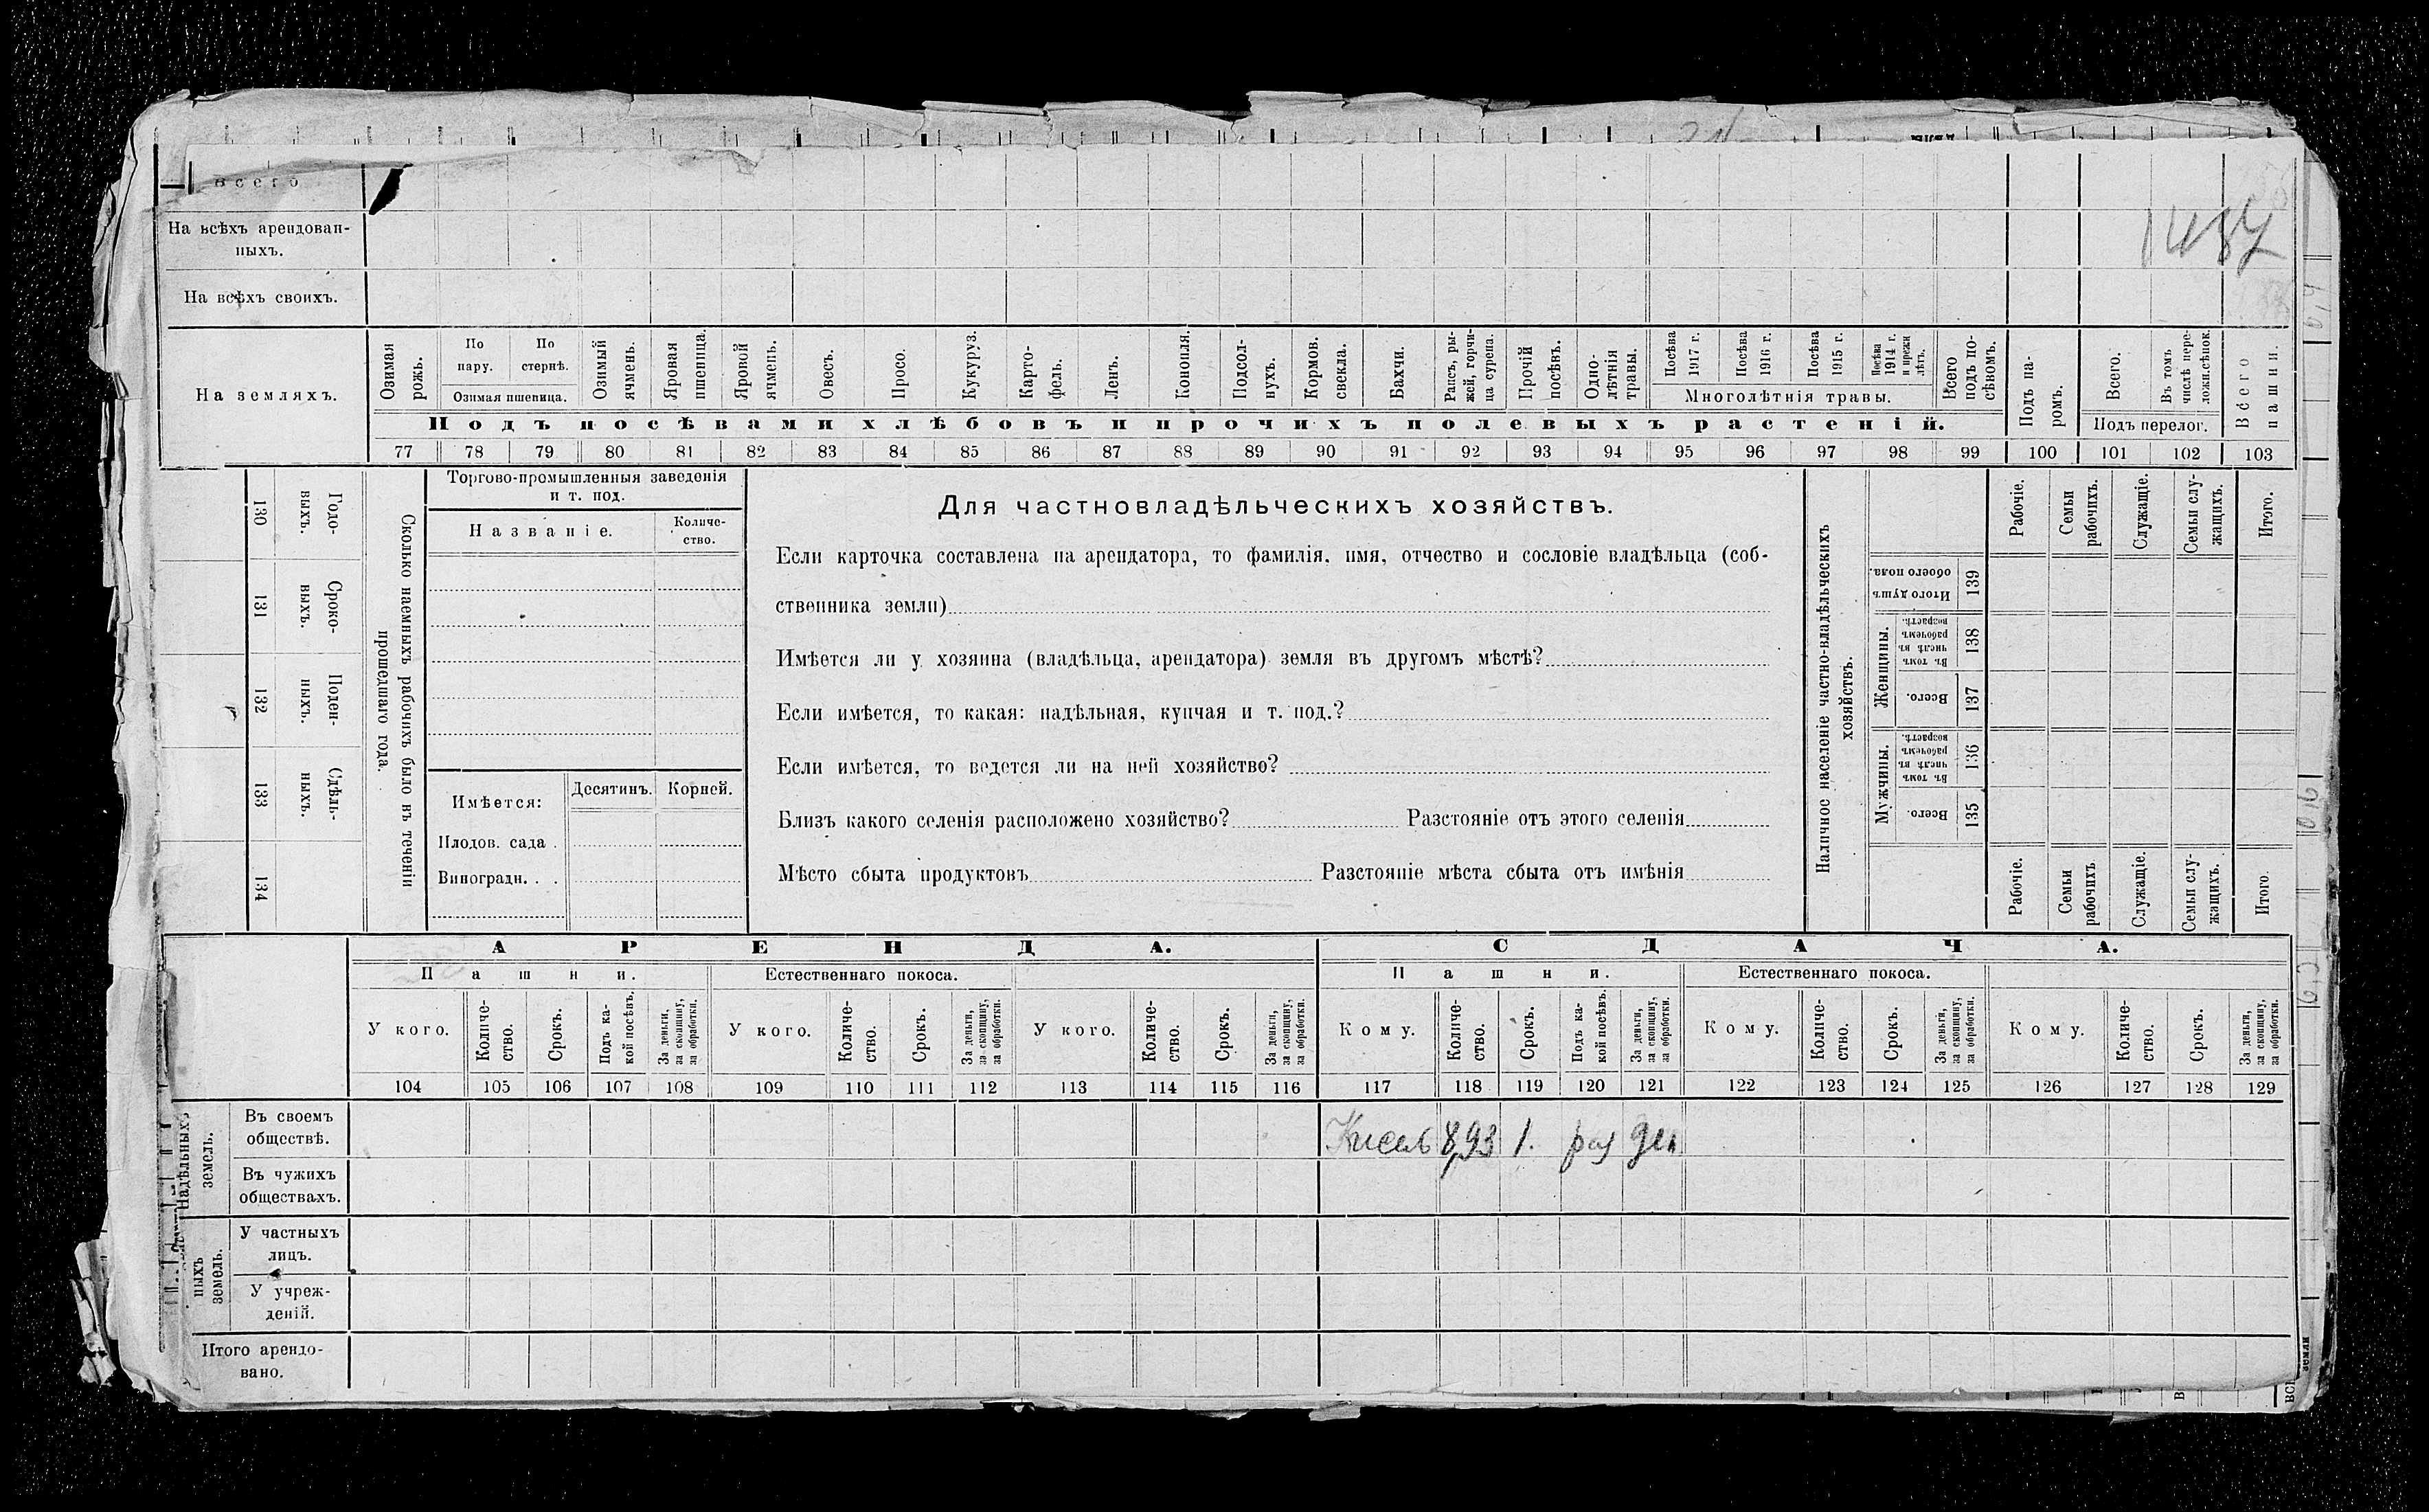 Всего
На всѣхъ арендован-
ныхъ.
1487
На всѣхъ своихъ.
На земляхъ.
Озимая рожь.
По пару.
По стернѣ.
Озимая пшеница.
Озимый ячмень.
Яровая пшеница.
Яровой ячмень.
Овесъ.
Просо.
Кукуруз.
Карто-
фель.
Ленъ.
Конопля.
Подсол-
нухъ.
Кормов. свекла.
Бахчи.
Рапсъ, ры-
жей, горчи-
ца сурепа.
Прочій посѣвъ.
Одно-
лѣтнія травы.
Посѣва 1917 г.
Посѣва 1916 г.
Посѣва 1915 г.
Посѣва 1914 г. и прежн лѣтъ.
Многолѣтнія травы.
Всего подъ по-
сѣвомъ.
Подъ па-
ромъ.
Всего.
Въ томъ числѣ пере-
ложн.сѣнок.
Подъ перелог.
Всего пашни.
Подъ посѣвами хлѣбовъ и прочихъ полевыхъ растеній.
77 78 79 80 81 82 83 84 85 86 87 88 89 90 91 92 93 94 95 96 97 98 99 100 101 102 103
130 Годо-
выхъ.
131 Сроко-
ныхъ.
132 Поден-
ныхъ.
133 Сдѣль-
ныхъ.
134
Сколько наемныхъ рабочихъ было въ теченіи
прошедшаго года.
Торгово-промышленныя заведенія
и т. под.
Названіе.
Количе-
ство.
Имѣется:
Десятинъ.
Корней.
Плодов. сада .
Виноградн. . .
Для частновладѣльческихъ хозяйствъ.
Если карточка составлена на арендатора, то фамилія, имя, отчество и сословіе владѣльца (соб-
ственника земли)
Имѣется ли у хозяина (владѣльца, арендатора) земля въ другомъ мѣстѣ?
Если имѣется, то какая: надѣльная, купчая и т. под.?
Если имѣется, то ведется ли на ней хозяйство?
Близъ какого селенія расположено хозяйство? Разстояніе отъ этого селенія
Мѣсто сбыта продуктовъ Разстояніе мѣста сбыта отъ имѣнія
Наличное населеніе частно-владѣльческихъ
хозяйствъ.
Рабочіе.
Семьи рабочихъ.
Служащіе.
Семьи слу-
жащихъ.
Итого.
Итого душъ обоего пола.
139
Женщины.
Въ томъ числѣ въ рабочемъ возрастѣ.
138
Всего.
137
Мужчины.
Въ томъ числѣ въ рабочемъ возрастѣ.
136
Всего.
135
Рабочіе.
Семьи рабочихъ
Служащіе.
Семьи слу-
жащихъ.
Итого.
АРЕНДА.
СДАЧА.
Пашни.
Естественнаго покоса.
Пашни.
Естественнаго покоса.
У кого.
Количе-
ство.
Срокъ.
Подъ ка-
кой посѣвъ.
За деньги, за скопщину, за обработки.
У кого.
Количе-
ство.
Срокъ.
За деньги, за скопщину, за обработки.
У кого.
Количе-
ство.
Срокъ.
За деньги, за скопщину, за обработки.
Кому.
Количе-
ство.
Срокъ.
Подъ ка-
кой посѣвъ.
За деньги, за скопщину, за обработки.
Кому.
Количе-
ство.
Срокъ.
За деньги, за скопщину, за обработки.
Кому.
Количе-
ство.
Срокъ.
За деньги, за скопщину, за обработки.
104 105 106 107 108 109 110 111 112 113 114 115 116 117 118 119 120 121 122 123 124 125 126 127 128 129
Надѣльныхъ земель.
Въ своемъ
обществѣ.
Кисель 8,93 1. раз ден
Въ чужихъ
обществахъ.
ныхъ земель.
У частныхъ
лицъ.
У учреж-
деній.
Итого арендо-
вано.